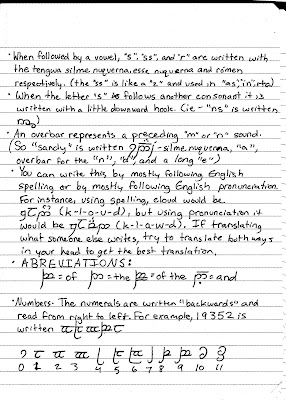 • When followed by a vowel, "s", "ss", and "r" are written with
the tengwa silme nuquerna, esse nuquerna and rómen
respectively. (the "ss" is like a "z" and used in "as", "is", etc)
• When the letter "s" follows another consonant it is
written with a little downward hook. (ie - "ns" is written
• An overbar represents a preceding "m" or "n" sound.
(So "sandy" is written - silme nuquerna, "a",
overbar for the "n", "d", and a long "e")
• You can write this by mostly following English
spelling or by mostly following English pronunciation.
For instance, using spelling, cloud would be
(k-l-o-u-d), but using pronunciation it
would be (k-l-a-w-d). If translating
what someone else writes, try to translate both ways
in your head to get the best translation.
• ABREVIATIONS:
= of = the = of the = and
• Numbers - The numerals are written "backwards" and
read from right to left. For example, 19352 is
written
0 1 2 3 4 5 6 7 8 9 10 11